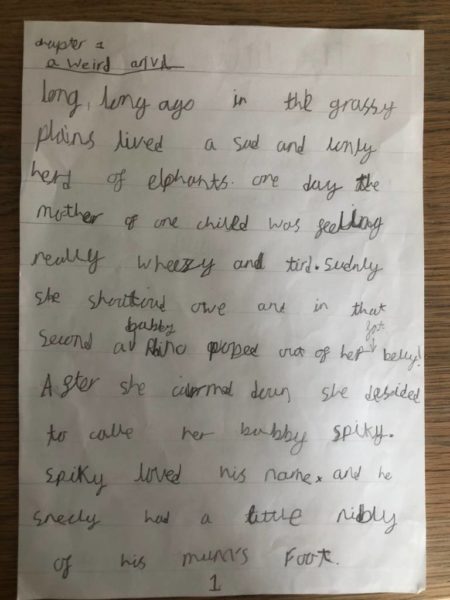 chapter 1
a weird
long, long ago in the grassy
plains lived a sad and lonly
herd of elphants. one day the
mother of one chilld was feeling
really wheezy and tird. sudnly
she shouted owe and in that
babby
second a Rhino poped out of her belly!
After she carmed down she desided
to calle her babby spiky.
spiky loved his name, and he
sneely had a little nibly
of his mum's Foot.
1